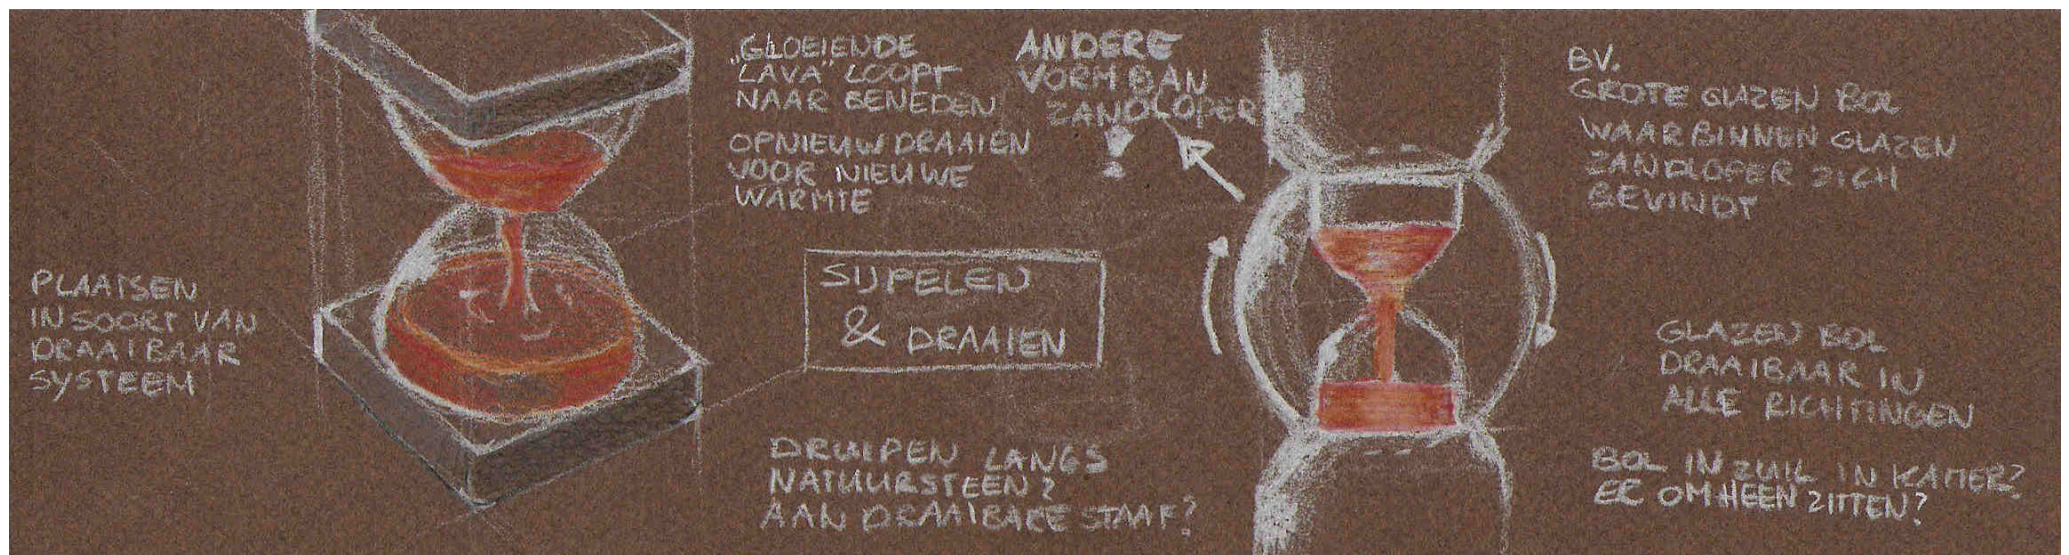 PLAATSEN
IN SOORT VAN
DRAAIBAAR
SYSTEEM
„GLOEIENDE
LAVA" LOOPT
NAAR BENEDEN
OPNIEUW DRAAIEN
VOOR NIEUWE
WARMTE
SIJPELEN
& DRAAIEN
DRUIPEN LANGS
NATUURSTEEN?
AAN DRAAIBARE STAAF?
ANDERE
VORM BAN
ZANDLOPER
!
?
BV.
GROTE GLAZEN BOL
WAARBINNEN GLAZEN
ZANDLOPER ZICH
BEVINDT
GLAZEN BOL
DRAAIBAAR IN
ALLE RICHTINGEN
BOL IN ZUIL IN KAMER?
ER OMHEEN ZITTEN?